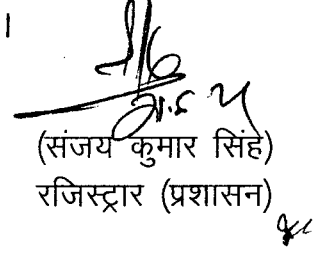 ।
(संजय कुमार सिंह)
रजिस्ट्रार (प्रशासन)